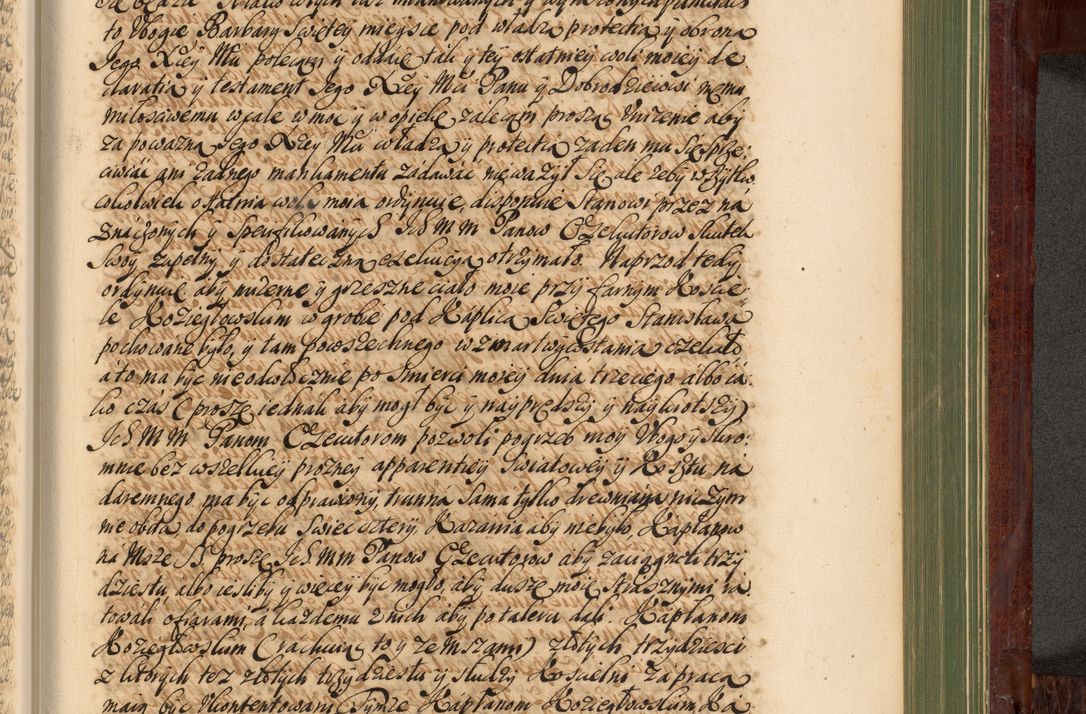 to Ubogie Barbary Swiętey mieysce pod władzą protectią y obroną
Jego Xcey Mci polecam y oddaię tak y tey ostatniey woli moiey de
claratią y testament Jego Xcey Mci Panu y Dobrodzieiowi memu
miłosciwemu wcale w moc y w opiekę zalecam prosząc unizenie aby
za powazną Jego Xcey Mci władzą y protectią zaden mu się sprze
ciwiac ani zadnego mankamentu zadawac niewazył się ale zeby wszytko
cokolwiek ostatnia wola moia ordynuie, disponuie stanowi przez na
znaczonych y specifikowanych Ich M M Panow Exekutorow skutek
swoy zupełny y dostateczną exekucyą otrzymało. Naprzod tedy
ordynuię aby mizerne y grzeszne ciało moie przy farnym Koscie
le Koziegłowskim w grobie pod Kaplicą Swiętego Stanisława
pochowane było, y tam powszechnego w zmartwychwstania czekało
a to ma byc nieodwłocznie po smierci moiey dnia trzeciego albo ia
ko czas (proszę iednak aby mogł byc y nayprędszy y naykrotszy)
Ich M M Panom Exekutorom pozwoli pogrzeb moy Ubogi y skro
mne bez wszelkiey prozney apparentiey swiatowey y Kosztu na
daremnego ma byc odprawiony, trunna sama tylko drewniana niczym
nie obita, do pogrzebu swiec cztery, Kazania aby niebyło, Kapłanow
na Msze SS. proszę Ich Mm Panow Exekutorow aby zaciągneli trzy
dziestu albo iesliby y więcey byc mogło, aby duszę moię strasznymi ra
towali ofiarami, a kazdemu z nich aby po talera dali. Kapłanom
Koziegłowskim (rachuiąc to y ze Mszami) złotych trzydziesci
z ktorych tez złotych trzydziestu y słudzy Koscielni za pracą
maią byc Ukontentowani Tymze Kapłanom Koziegłowskim, Ka